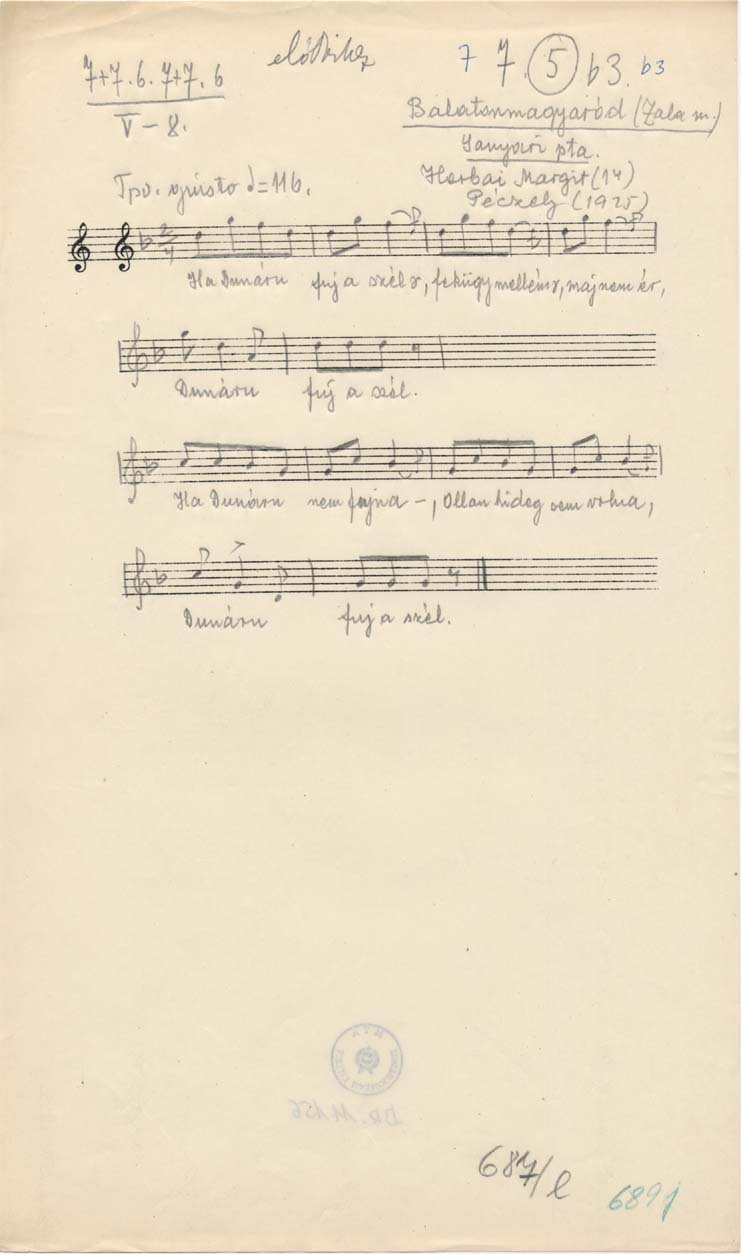 7+7.6.7+7.6
V – 8.
7 7. 5 b3. b3
Balatonmagyaród (Zala m.)
pta.
Horbai Margit (14)
Péczely (1925)
Tpo. giusto = 116.
2/4
Ha Dunáru fuj a szél, feküggy mellém, máj nem ér,
Dunáru fúj a szél.
Ha Dunáru nem fujna –, Ollan hideg sem vólna,
Dunáru fuj a szél.
687/l